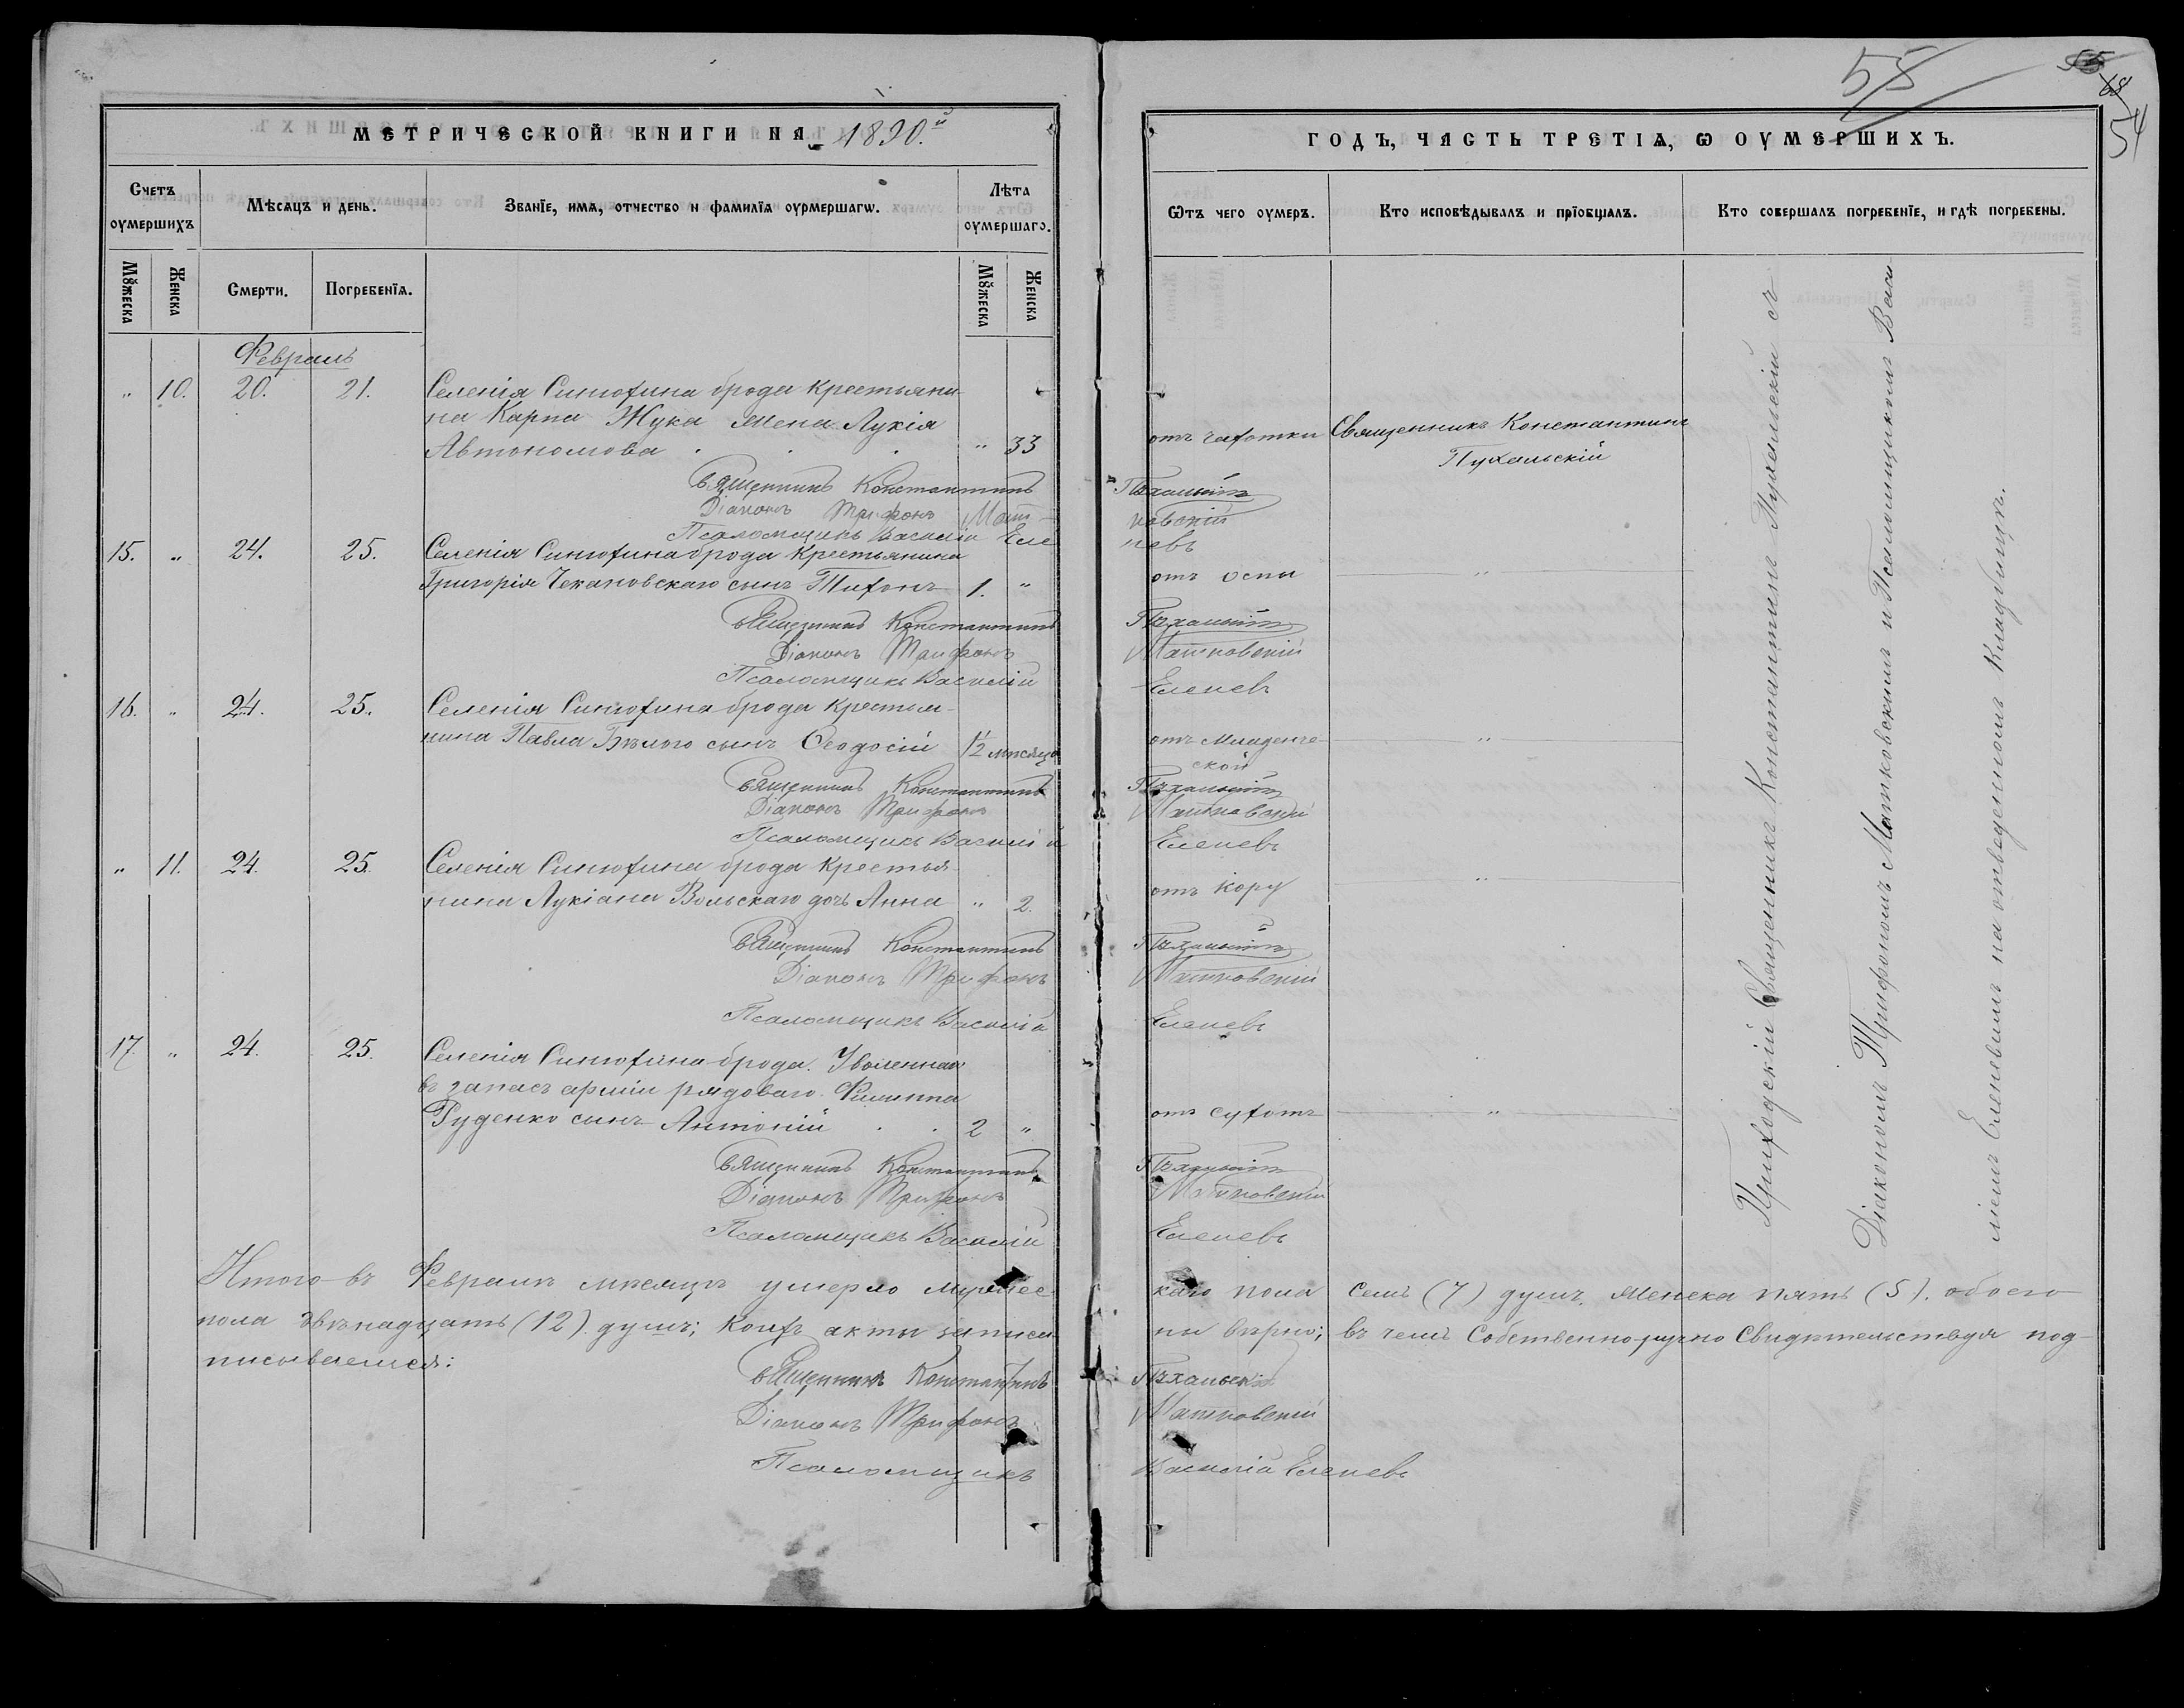 МЕТРИЧЕСКОЙ КНИГИ НА 1890.й
Счетъ оумершихъ
Мѣсѧцъ и день.
Званїе, имѧ, отчество и фамилїѧ оурмершагѡ.
Лѣта оумершаго.
Мꙋжеска
Женска
Смерти.
Погребенїѧ.
Мꙋжеска
Женска
Февраль
" 10. 20. 21. Селенія Синюхина брода крестьяни-
на Карпа Жука жена Лукія
Автономова . . . " 33
Священникъ Константинъ
Діаконъ Трифонъ Мат-
Псаломщикъ Василій Еле
15. " 24. 25. Селенія Синюхина брода крестьянина
Григорія Чехановскаго сынъ Тихонъ 1. "
Священникъ Константинъ
Діаконъ Трифонъ
Псаломщикъ Василій
16. " 24. 25. Селенія Синюхина брода крестья-
нина Павла Бѣлого сынъ Ѳеодосій 1/2 мѣсяца
Священникъ Константинъ
Діаконъ Трифонъ
Псаломщикъ Василій
" 11. 24. 25. Селенія Синюхина брода крестья-
нина Лукіана Вольскаго дочь Анна " 2.
Священникъ Константинъ
Діаконъ Трифонъ
Псаломщикъ Василій
17 " 24. 25. Селенія Синюхина брода. Уволеннаго
въ запасъ арміи рядоваго Филиппа
Руденко сынъ Антоній . . 2 "
Священникъ Константинъ
Діаконъ Трифонъ
Псаломщикъ Василій
Итого въ Февралѣ мѣсяцѣ умерло мужес
пола двѣнадцать (12) душъ; коихъ акты записа
писываемся:
Священникъ Константинъ
Діаконъ Трифонъ
Псаломщикъ
58
55
68
54
ГОДЪ, ЧАСТЬ ТРЕТІѦ, Ѡ ОУМЕРШИХЪ.
Ѿтъ чего оумеръ.
Кто исповѣдывалъ и прїобщалъ.
Кто совершалъ погребенїе, и гдѣ погребены.
отъ чахотки Священникъ Константинъ
Пухальскій
Пухальскій
ковскій
невъ
отъ оспы "
Пухальскій
Матковскій
Еленевъ
отъ младенче- "
ской
Пухальскій
Матковскій
Еленевъ
отъ кору "
Пухальскій
Матковскій
Еленевъ
отъ сухотъ "
Пухальскій
Матковскій
Еленевъ
каго пола семь (7) душъ, женска пять (5). обоего
ны вѣрно; въ чемъ Собственноручно Свидѣтельствуя под-
Пухальскій
Матковскій
Василій Еленевъ
Приходскій Священникъ Константинъ Пухальскій съ
Діакономъ Трифономъ Матковскимъ и Псаломщикомъ Васи
ліемъ Еленевымъ на отведенномъ кладбищѣ.